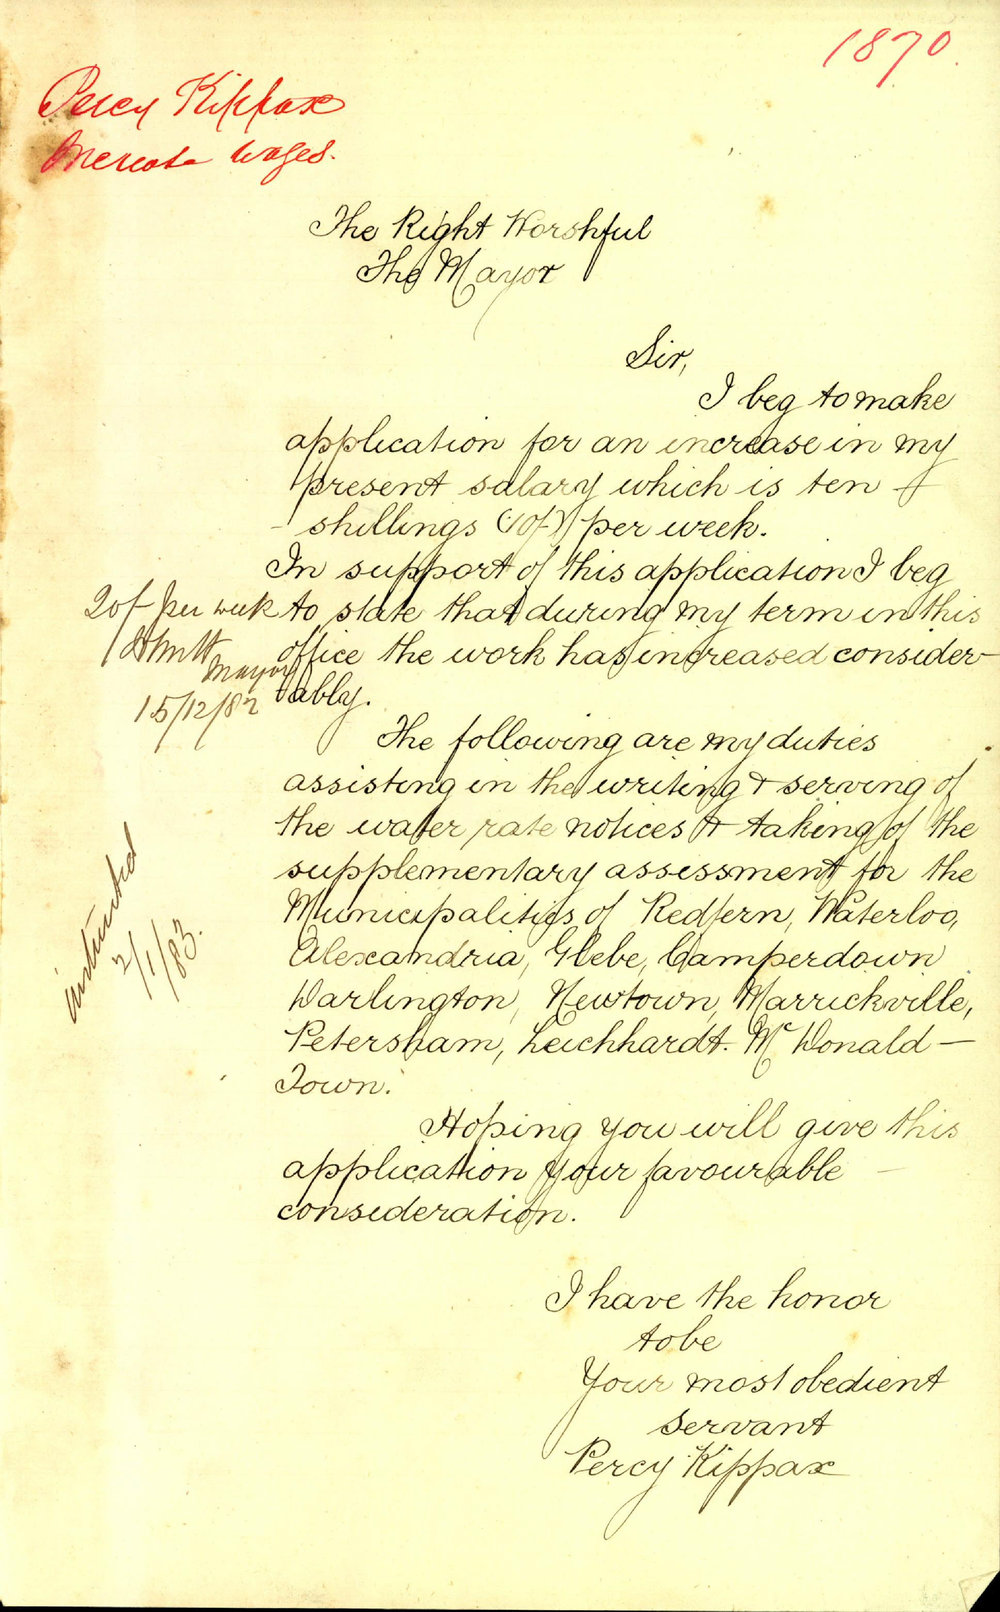 1870
Percy Kippax
Increase Wages.
The Right Worshful
The Mayor
Sir,
I beg to make
application for an increase in my
present salary which is ten
shillings (10/-) per week.
In support of this application I beg
to state that during my term in this
office the work has increased consider-
ably.
20/- per week
Mayor
15/12/82
The following are my duties
assisting in the writing & serving of
the water rate notices & taking of the
supplementary assessment for the
Municipalities of Redfern, Waterloo,
Alexandria, Glebe, Camperdown
Darlington, Newtown, Marrickville,
Petersham, Leichhardt. Mc Donald-
Town.
instructed
2/1/83.
Hoping you will give this
application your favourable
consideration.
I have the honor
to be
Your most obedient
servant
Percy Kippax